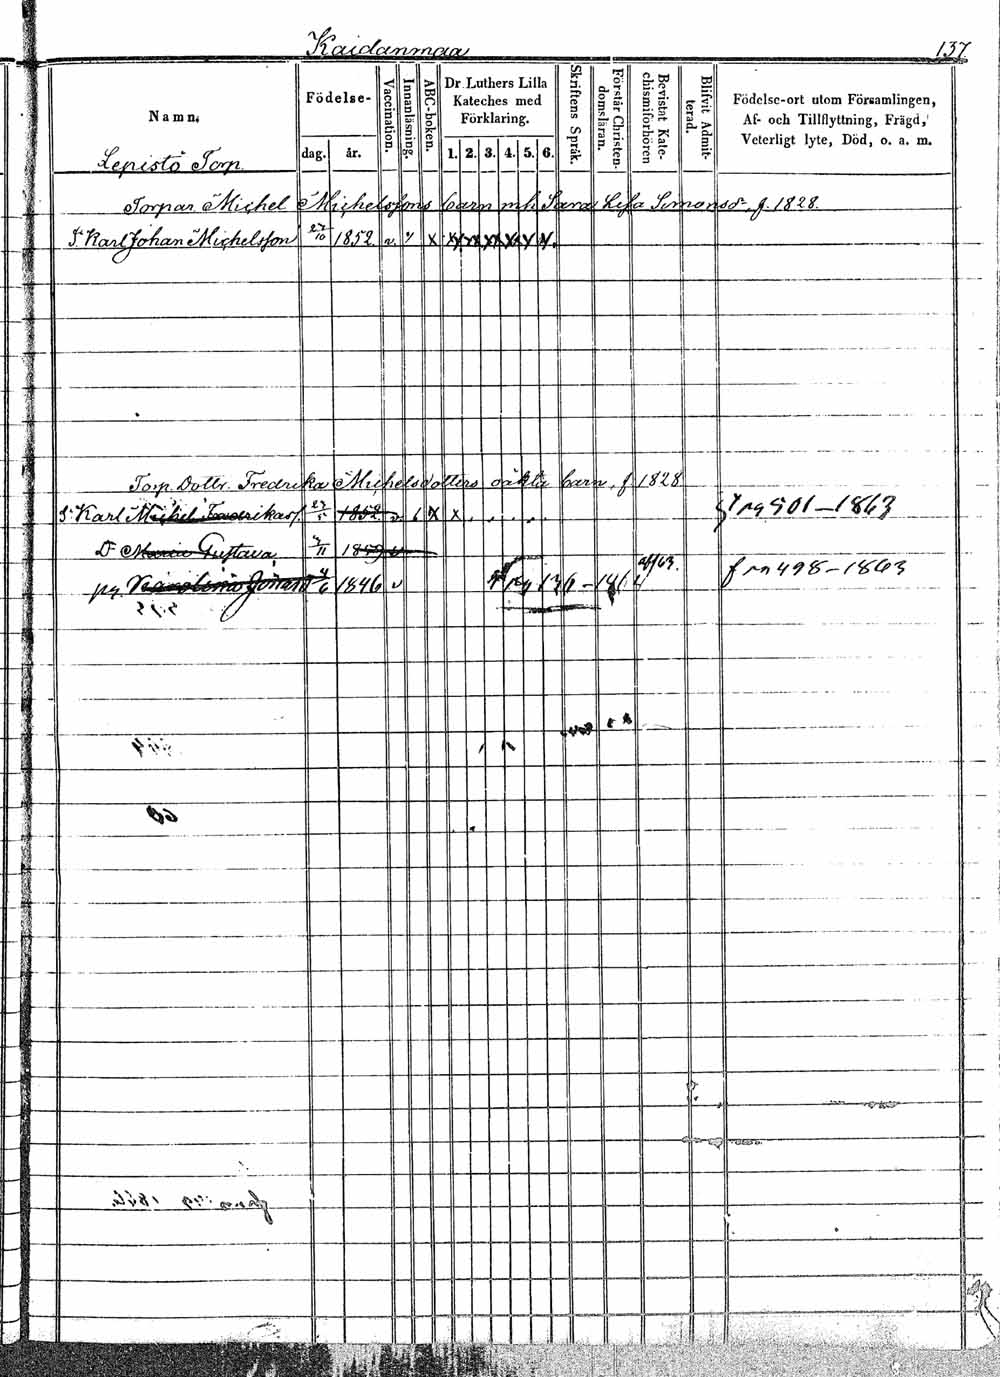 Kaidanmaa 137
Namn.
Födelse-
dag. år.
Vaccination.
Innanläsning.
ABC-boken.
Dr. Luthers Lilla
Kateches med
Förklaring.
1. 2. 3. 4. 5. 6.
Skriftens Språk.
Förstår Christen-
domsläran.
Bevistat Kate-
chismiförhören
Blifvit Admit-
terad.
Födelse-ort utom Församlingen,
Af- och Tillflyttning, Frägd,
Veterligt lyte, Död, o. a. m.
Lepistö Torp.
Torpar Michel Michelssons barn mh. Sara Lisa Simonsdr f. 1828.
S. Karl Johan Michelsson 27/10 1852. v. 7 x
Torp. Dottr. Fredrika Michelsdotters oäkta barn, f. 1828
S. Karl Michel Fredrikas 1852. v 6 x x 501–1863
Dr Maria Gustava, 1859 v
1846 v 136–141 f 498–1863